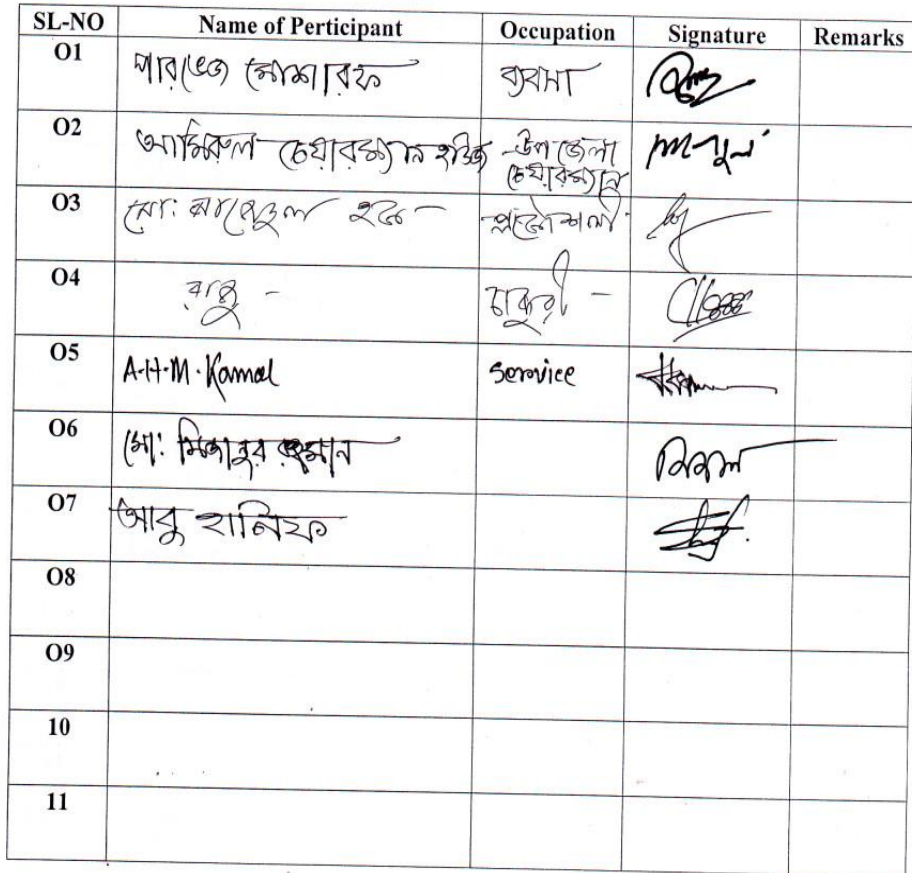 SL-NO Name of Perticipant Occupation Signature Remarks
O1 পারভেজ মোশারফ ব্যবসা
O2 আমিরুল চেয়ারম্যান উপজেলা
চেয়ারম্যান
O3 মো: হক প্রকৌশলী
O4 রাজু - চাকুরী -
O5 A.H.M. Kamal Service
O6 মো: মিজানুর রহমান
O7 আবু হানিফ
O8
O9
10
11